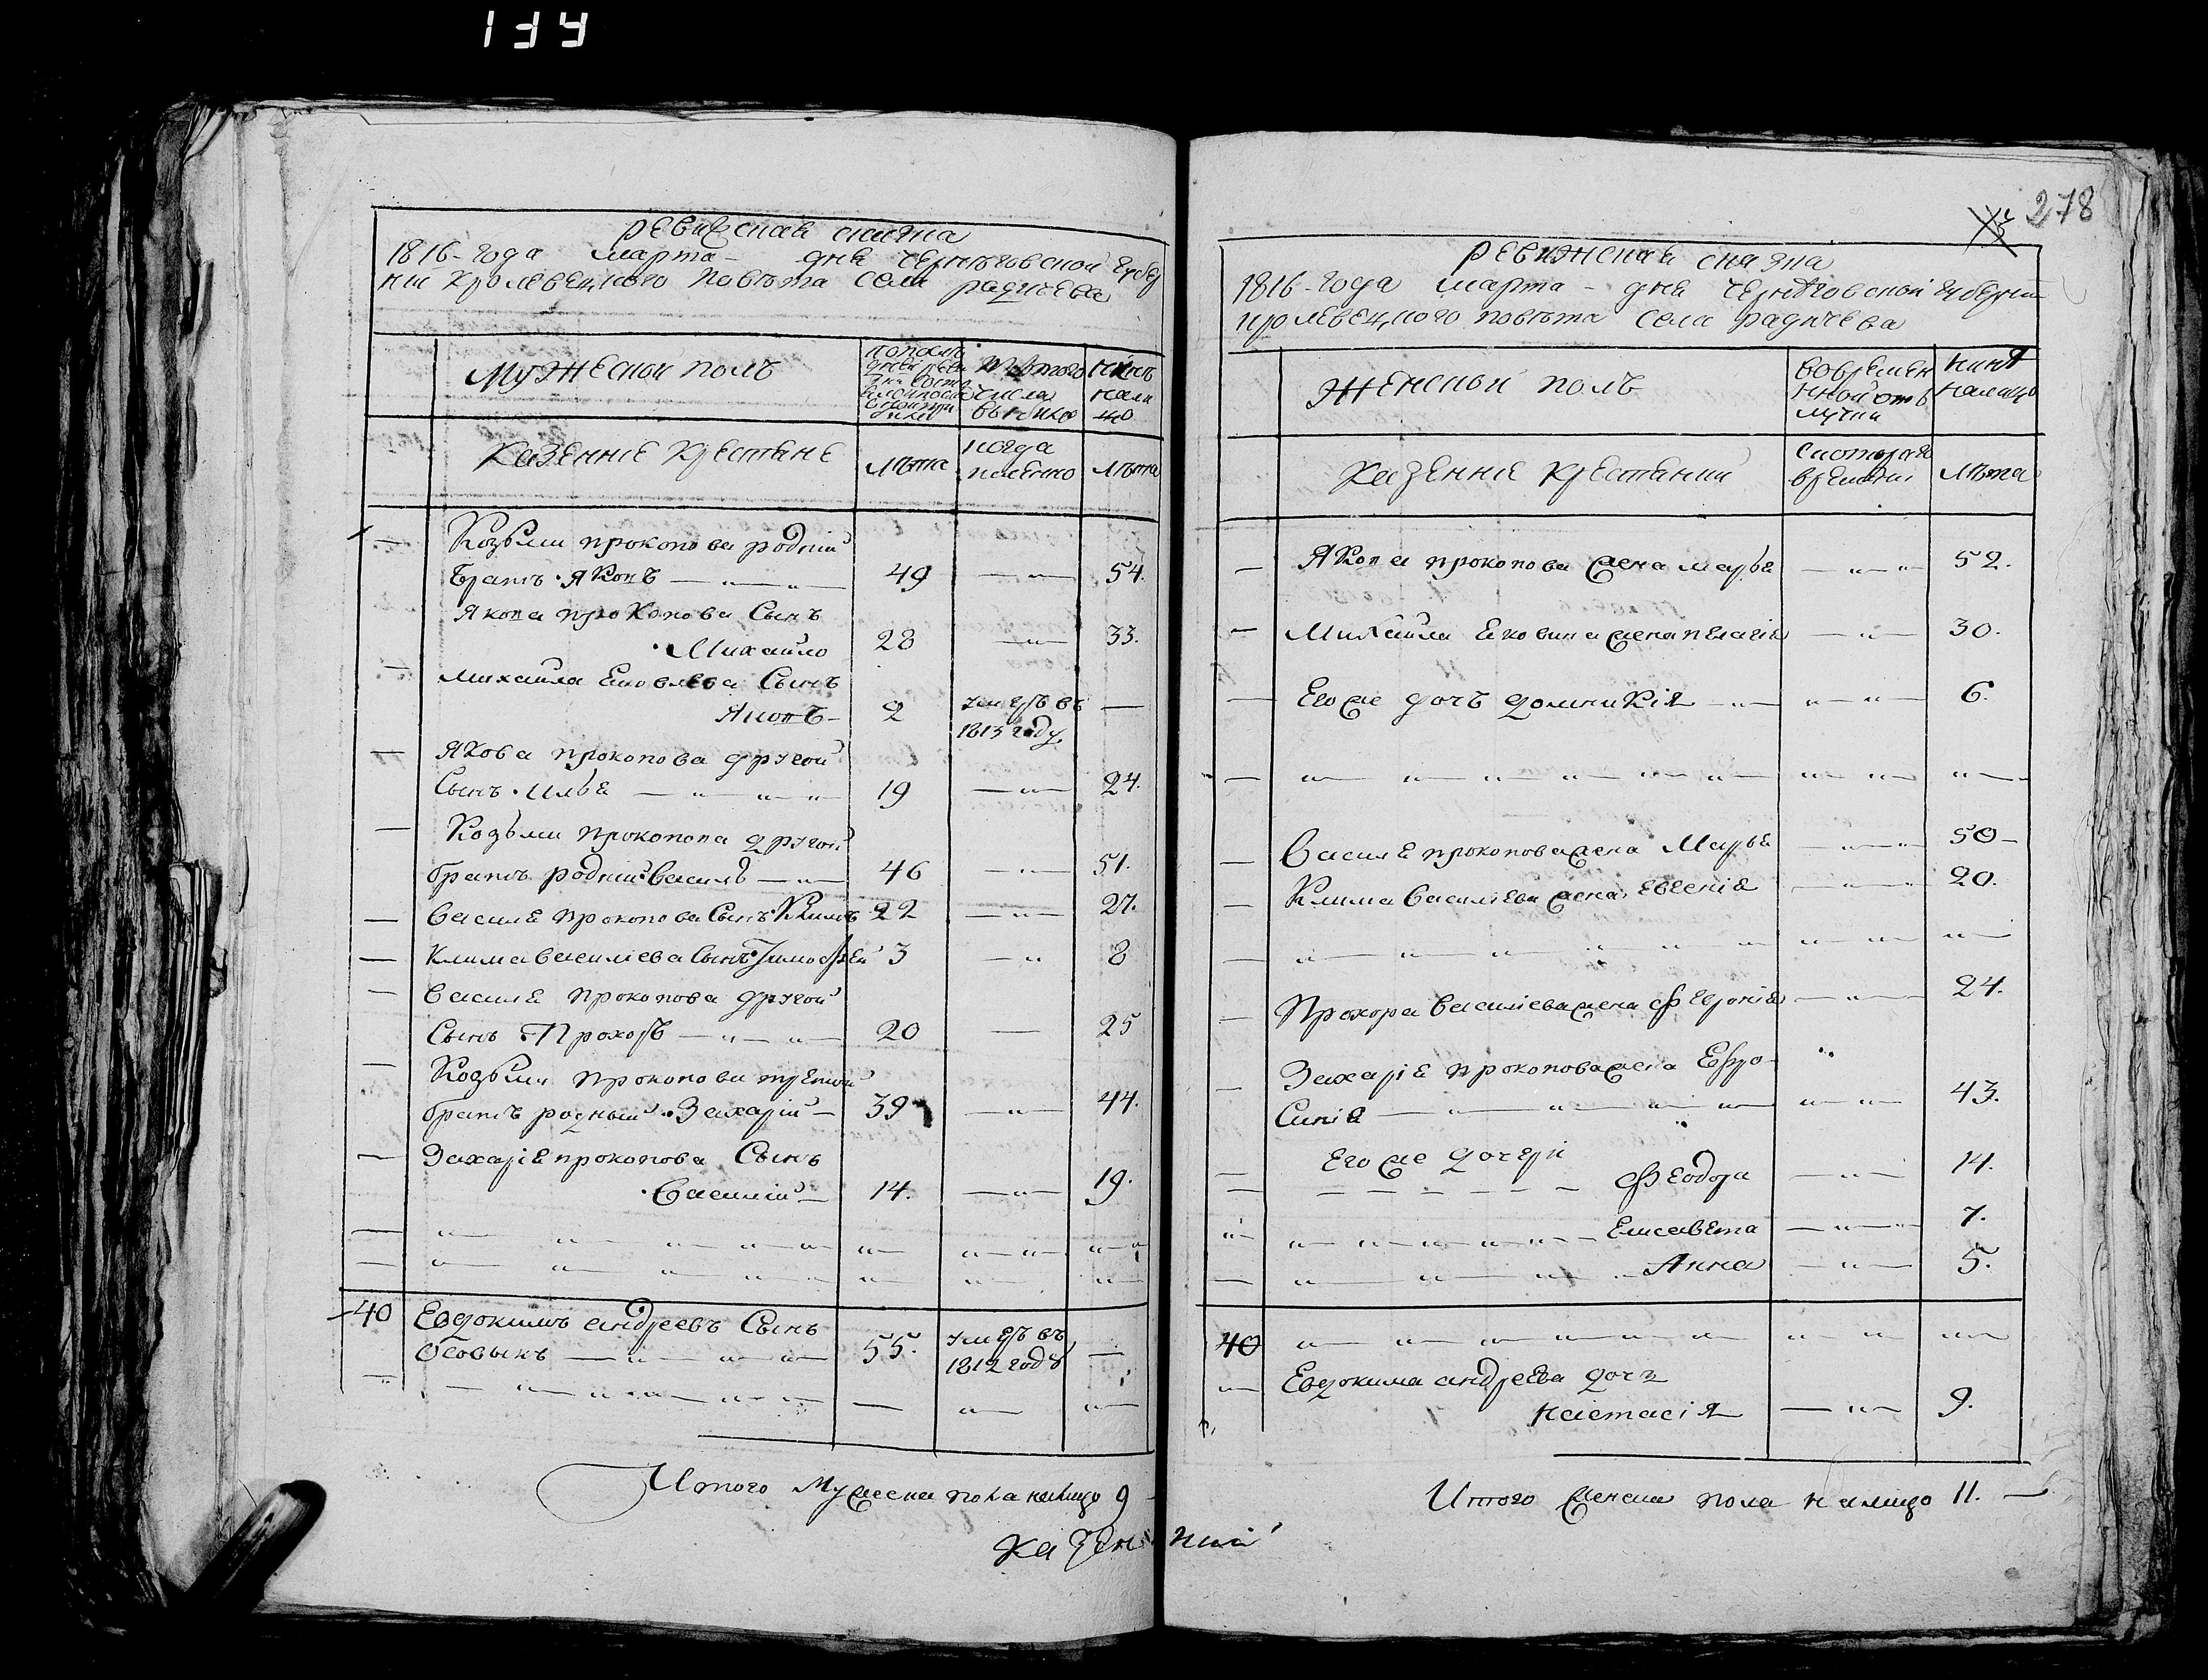 134
ревижская сказка
1816-года марта - дня черниговской губер
нии кролевецкого повѣта села радичева
Мужеской полъ
из того числа выбило
Нинѣ налицо
Казенніе крестяне
лѣта
когда именно
лѣта
Козьми прокопова родній
братъ Якопъ 49 54.
Якопа прокопова Сынъ
Михайло 28 33.
Михаила Яковлева Сынъ
Якопъ 2 умеръ въ 1813 году
Якова прокопова другой
Сынъ Илья 19 24.
Козьми прокопопа другой
братъ родній Василь 46 51.
Василя прокопова Сынъ Климъ 22 27.
Клима василіева Сынъ Тимофей 3 8
Василя прокопова другой
Сынъ Прохоръ 20 25
Козьми прокопова третий
братъ родный Захарій 39 44.
Захарія прокопова Сынъ
Василій 14. 19.
40 Евдокимъ андреевъ Сынъ
55. умеръ въ 1812 годѣ
Итого Мужеска пола налицо 9
Казенний
278
ревижская сказка
1816-года марта - дня черниговской губерніи
кролевецкого повѣта села радичева
Женской полъ
вовременной отлучки
нинѣ налицо
Казенніе крестянки
скоторого времени
лѣта
Якопа прокопова жена марья 52.
Михайла яковина жена пелагія 30.
Его же дочъ домникія 6.
Василя прокопова жена Марья 50
Клима Василіева жена евгенія 20.
Прохора Василіева жена февронія 24.
Захарія прокопова жена Ефро-
синія 43.
Его же дочери
Феодора 14.
Елисавета 7.
Анна 5.
40
Евдокима андреева дочъ
настасія 9.
Итого женска пола налицо 11.